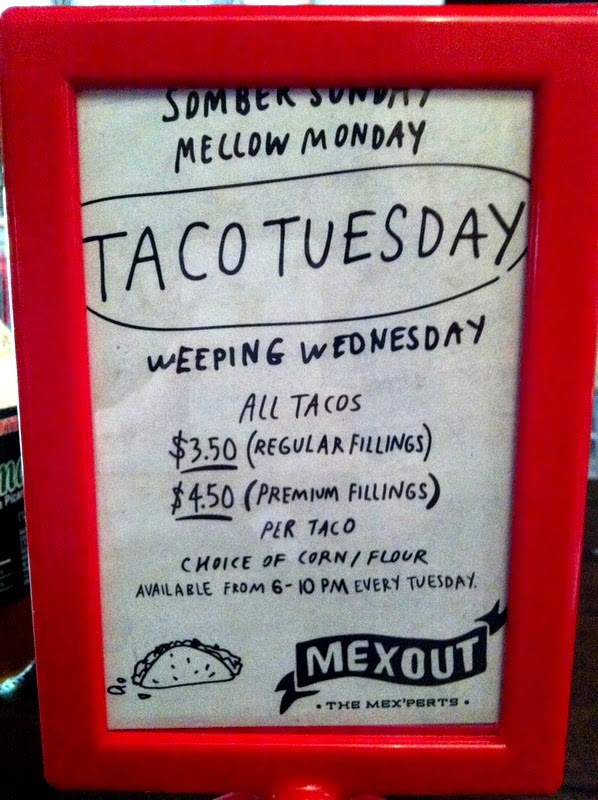 SOMBER SUNDAY
MELLOW MONDAY
TACO TUESDAY
WEEPING WEDNESDAY
ALL TACOS
$3.50 (REGULAR FILLINGS)
$4.50 (PREMIUM FILLINGS)
PER TACO
CHOICE OF CORN/FLOUR
AVAILABLE FROM 6-10 PM EVERY TUESDAY.
MEXOUT
• THE MEX'PERTS •